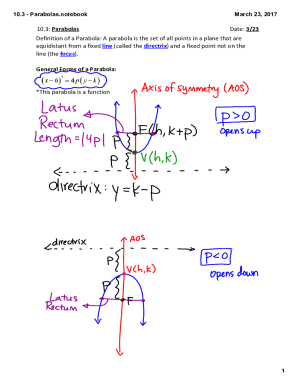 10.3 - Parabolas.notebook
March 23, 2017
10.3: Parabolas
Date: 3/23
Definition of a Parabola: A parabola is the set of all points in a plane that are
equidistant from a fixed line (called the directrix) and a fixed point not on the
line (the focus).
General Forms of a Parabola:
(x-h)² = 4p(y-k)
*This parabola is a function
Axis of symmetry (AOS)
Latus
Rectum
Length = |4p|
F(h, k+p)
p>0
opens up
P
P
V(h,k)
directrix: y = k-p
directrix
AOS
P
p<0
V(h,k)
opens down
P
Latus
Rectum
F
1